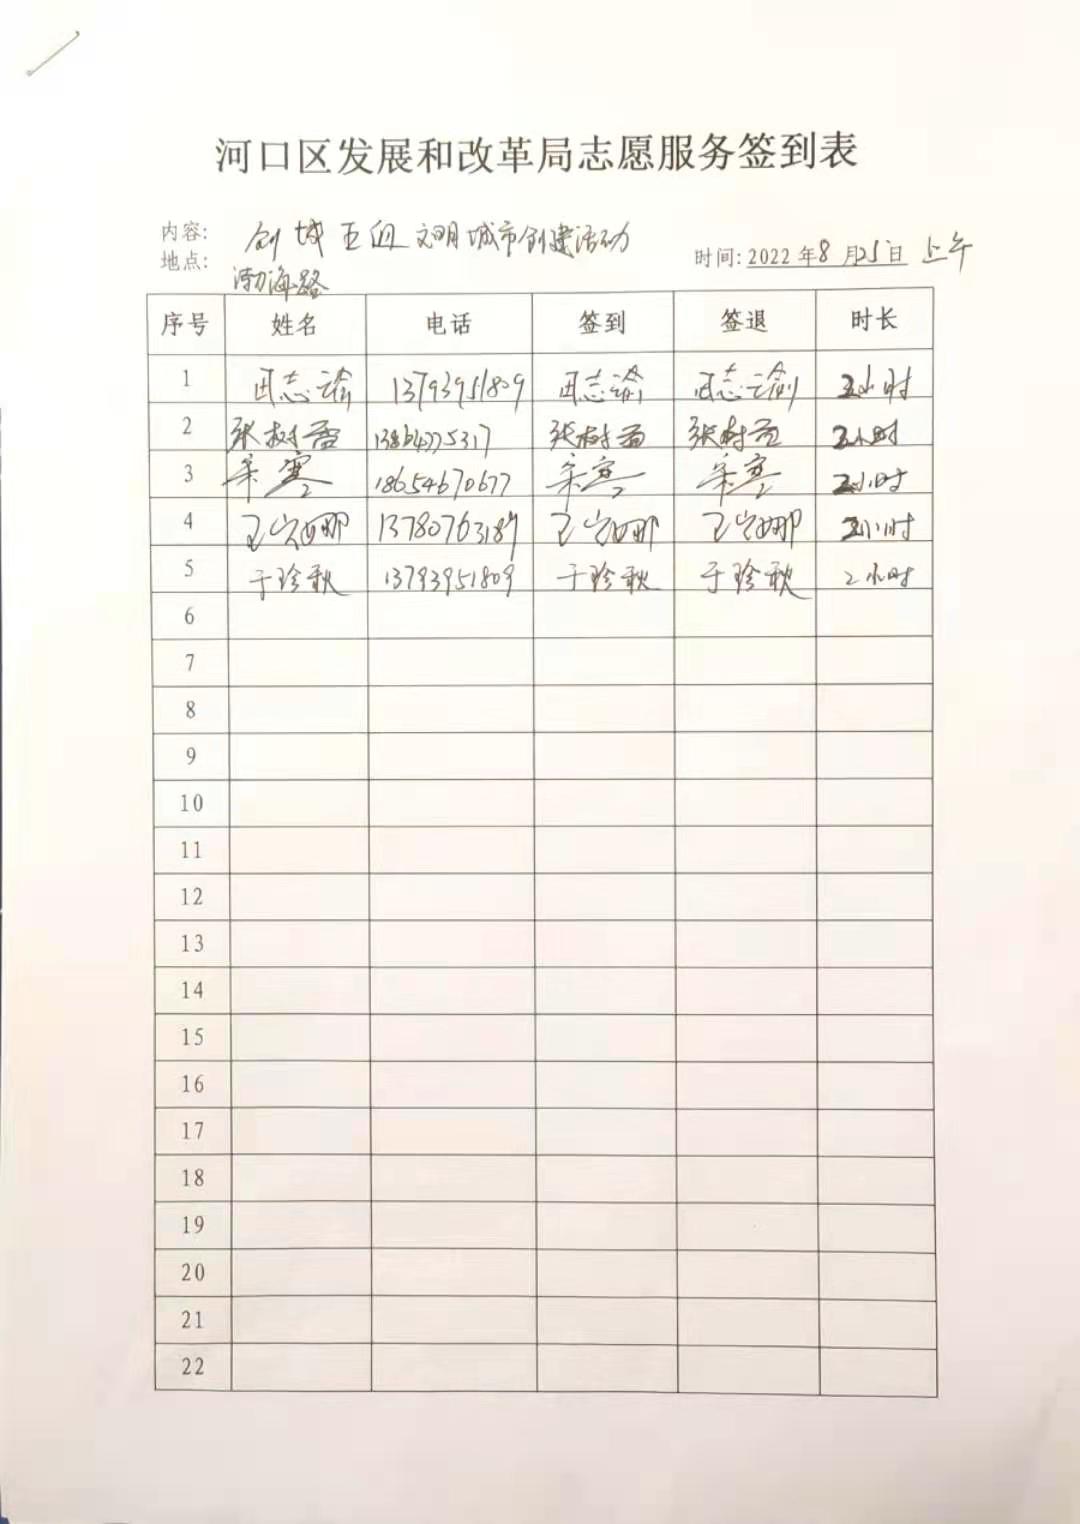 河口区发展和改革局志愿服务签到表
内容: 创城 文明城市创建活动
地点: 渤海路
时间: 2022年8月25日 上午
序号 姓名 电话 签到 签退 时长
1 田志谕 13793951809 田志谕 田志谕 2小时
2 张树 张树 张树 2小时
3 18654670677 2小时
4 王 娜 13780763187 王 娜 王 娜 2小时
5 于珍秋 13793951809 于珍秋 于珍秋 2小时
6
7
8
9
10
11
12
13
14
15
16
17
18
19
20
21
22